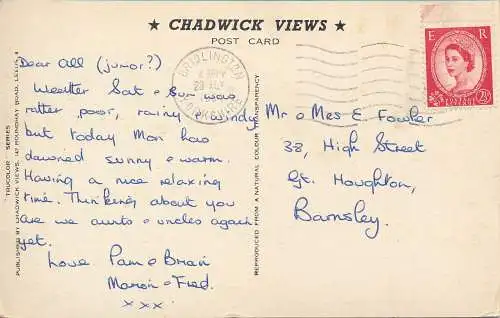 ★ CHADWICK VIEWS ★
POST CARD
Dear All (junor?)
Weather Sat & Sun was
rather poor, rainy & windy
but today Mon has
dawned sunny & warm.
Having a nice relaxing
time. Thinking about you
are we aunts & uncles again
yet.
Love Pam & Brian
Marion & Fred.
xxx
BRIDLINGTON
YORKSHIRE
E R
2½D
Mr & Mrs E. Fowler
38, High Street
Gt. Houghton,
Barnsley.
"TRUCOLOR" SERIES
PUBLISHED BY CHADWICK VIEWS, 147 ROUNDHAY ROAD, LEEDS, 8
REPRODUCED FROM A NATURAL COLOUR TRANSPARENCY